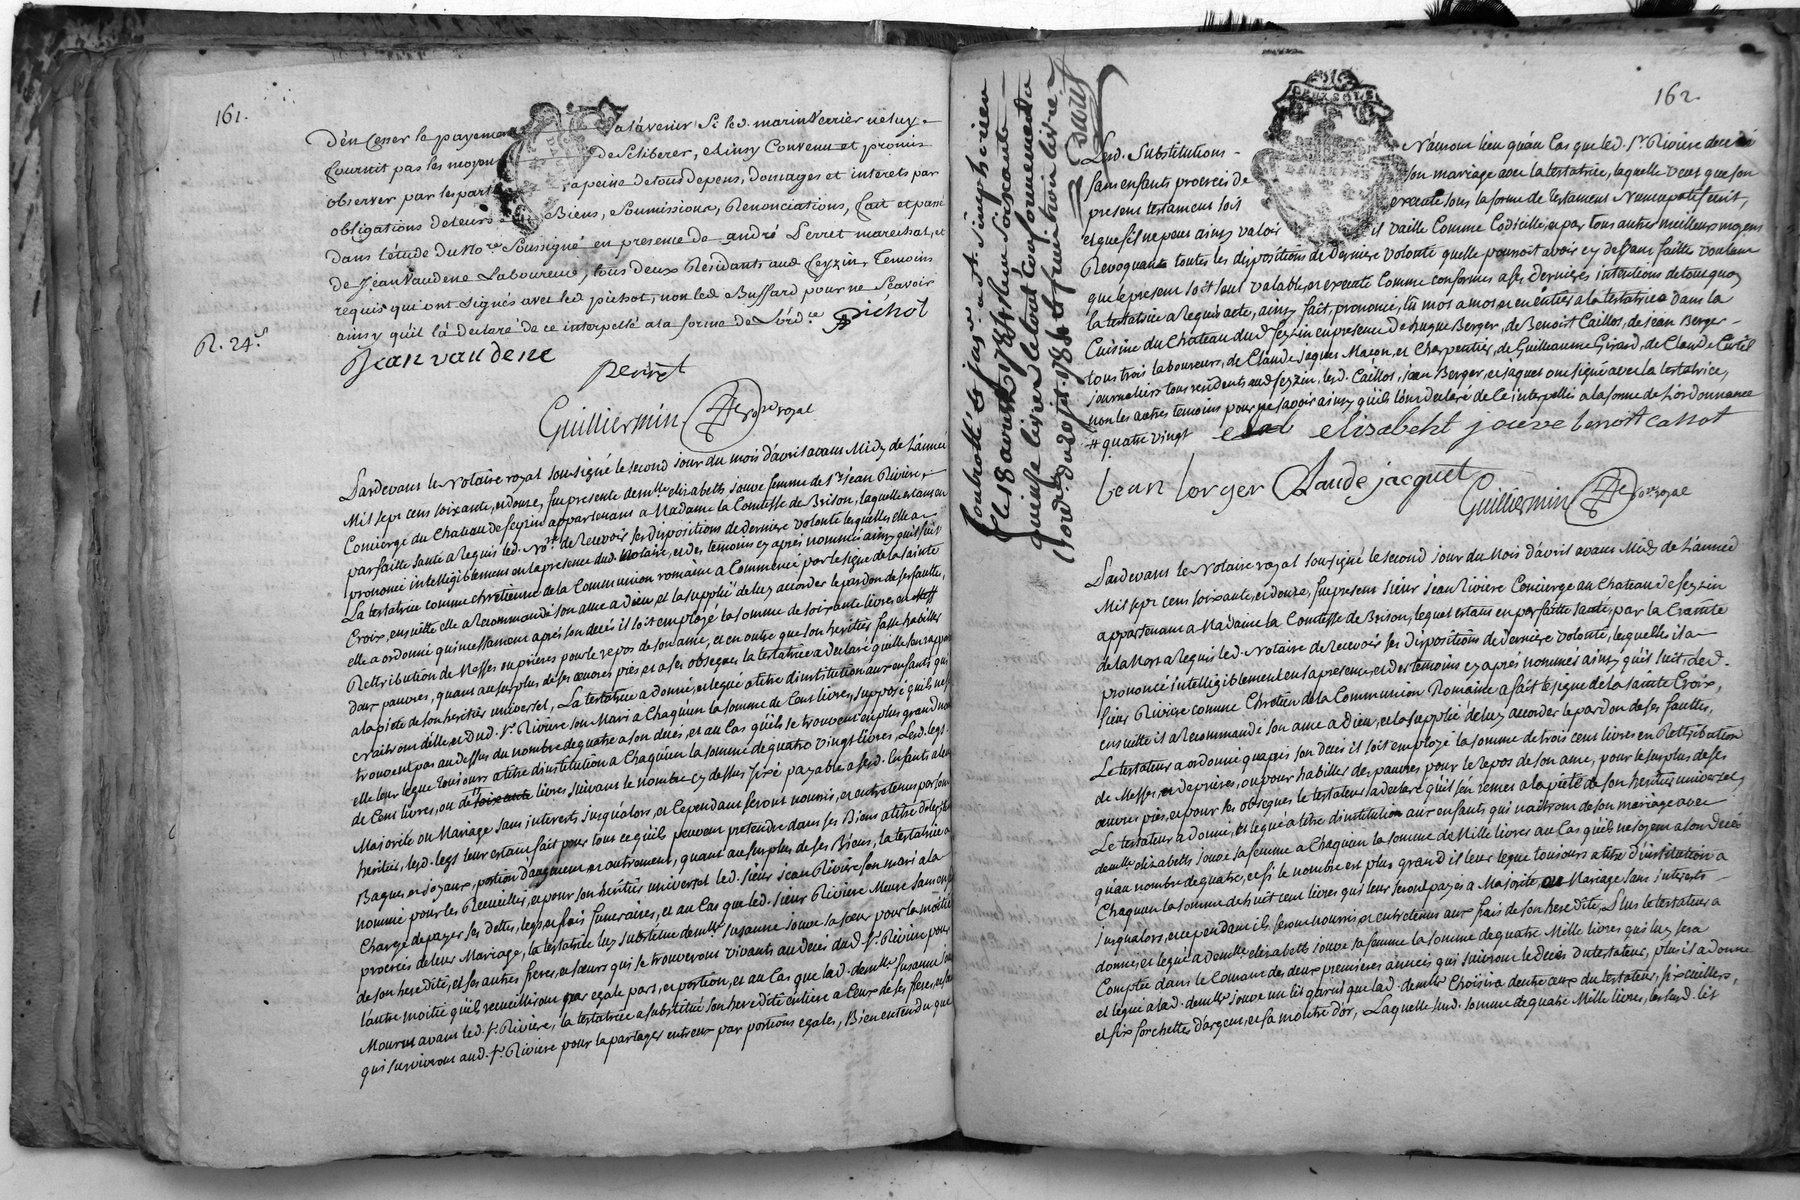 161.
d'en Cesser le payement a l'avenir Si led. marin Verrier ne luy
fournit pas les moyens de Se liberer, et ainsy Convenu et promis
observer par les parties a peine de tous depens, domages et interets par
obligations de leurs Biens, Soumissions, Renonciations, fait et passé
dans l'étude du No.re Soussigné en presence de andré Perret marechal, et
de Jean Vaudene Laboureur, tous deux Residants aud. feyzin, Temoins
requis qui ont Signés avec led. pichot, non led. Bussard pour ne Scavoir
ainsy qu'il l'a declaré de ce interpellé a la forme de l'ord.ce Pichot
R. 24.s
Jean vaudene
perret
Guilliermin No.re royal
Pardevant le Notaire royal Soussigné le second jour du mois d'avril avant Midy de L'année
Mil sept cens soixante, et douze, fut presente dem.lle elizabeth jouve femme de S.r jean Riviere,
Concierge du Chateau de feyzin appartenant a Madame la Comtesse de Brison, laquelle estant en
parfaitte santé a Requis led. No.re de Recevoir ses dispositions de derniere volonté lesquelles elle a
prononcé intelligiblement en la presence dud. Notaire, et des temoins cy après nommés ainsy qu'il suit
La testatrice comme chretienne de la Communion romaine a Commencé par le signe de la Sainte
Croix, ensuitte elle a Recommandé son ame a Dieu et la supplié de luy accorder le pardon de ses fautes,
elle a ordonné qu'incessament après son decès il soit employé la somme de soixante livres en
Rettribution de Messes en prieres pour le repos de son ame, et en outre que son heritier fasse habiller
deux pauvres, quant au surplus de ses œuvres pies et a ses obseques la testatrice a declaré qu'elle s'en rapporte
a la pieté de son heritier universel, La testatrice a donné et legué a titre d'institution aux enfants qui
naitront d'elle, et dud. S.r Riviere son Mari a Chaqu'un la somme de Cent livres, supposé qu'ils ne se
trouvent pas au dessus du nombre de quatre a son decès, et au Cas qu'ils se trouvent en plus grand nombre
elle leur legue toujours a titre d'institution a Chaqu'un la somme de quatre vingt livres, Lesd. legs
de Cent livres, ou de soixante livres suivant le nombre cy dessus fixé payable a sesd. Enfants a leur
Majorité ou Mariage sans interests jusqu'alors, et Cependant seront nourris, et entretenus par son
heritier, lesd. legs leur estant fait pour tous ce qu'ils peuvent pretendre dans ses Biens a titre de legitime
Bagues, et joyaux, portion d'augment et autrement, quant au surplus de ses Biens, la testatrice a
nommé pour les Recueillir, et pour son heritier universel led. sieur jean Riviere son mari a la
Charge de payer ses dettes, legs et frais funeraires, et au Cas que led. sieur Riviere Meure sans enfants
procréés de leur Mariage, la testatrice luy substitue dem.lle susanne jouve sa sœur pour la moitié
de son heredité, et ses autres freres, et sœurs qui se trouveront vivants au decès dud. S.r Riviere pour
l'autre moitié qu'ils recueilliront par egale part, et portion, et au Cas que lad. dem.lle Susanne jouve
Mourut avant led. S.r Riviere, la testatrice a substitué son heredité entiere a Ceux de ses freres, et sœurs
qui surviveront aud. S.r Riviere pour la partager entreux par portions egales, Bien entendu que
162.
Controllé a
le 18 avril 1785
quinze livres
Lesd. Substitutions n'auront lieu qu'au Cas que led. S.r Riviere decede
sans enfants procréés de son mariage avec la testatrice, laquelle veut que son
present testament soit executé sous la forme de testament Nuncupatif ecrit,
et que s'il ne peut ainsy valoir il vaille Comme Codicille et par tous autres meilleurs moyens
Revoquant toutes les dispositions de derniere Volonté quelle pourroit avoir cy devant faittes voulant
que le present soit seul valable, et executé Comme conformes a ses dernieres intentions de tous quoy
la testatrice a requis acte, ainsy fait, prononcé, lu mos a mos et en entier a la testatrice dans la
Cuisine du Chateau dud. feyzin en presence de hugue Berger, de Benoist Caillot, de jean Berger
tous trois laboureurs, de Claude jaques Maçon, et Charpentier, de Guilleaume Girard, de Claude
journaliers tous residents aud. feyzin, lesd. Caillot, jean Berger, et jaques ont signé avec la testatrice,
non les autres temoins pour ne sçavoir ainsy qu'ils l'ont declaré de Ce interpellés a la forme de L'ordonnance
# quatre vingt elisabeht jouve benoit Callot
jean berger Claude jacquet Guilliermin No.re royal
Pardevant le Notaire royal soussigné le second jour du Mois d'avril avant Midy de L'année
Mil sept cens soixante, et douze, fut present sieur jean Riviere Concierge au Chateau de feyzin
appartenant a Madame la Comtesse de Brison, lequel estant en parfaitte santé, par la Crainte
de la Mort a Requis led. Notaire de Recevoir ses dispositions de derniere volonté, lesquelles il a
prononcé intelligiblement en sa presence, et des temoins cy après nommés ainsy qu'il suit, led.
sieur Riviere comme Chretien de la Communion Romaine a fait le signe de la sainte Croix,
ensuitte il a Recommandé son ame a Dieu, et la supplié de luy accorder le pardon de ses fautes,
Le testateur a ordonné qu'après son decès il soit employé la somme de trois cent livres en Rettribution
de Messes, et de prieres, ou pour habiller des pauvres pour le repos de son ame, pour le surplus de ses
œuvres pies, et pour ses obseques le testateur a declaré qu'il s'en remet a la pieté de son heritier universel,
Le testateur a donné, et legué a titre d'institution aux enfants qui naitront de son mariage avec
dem.lle elizabeth jouve sa femme a Chaqu'un la somme de Mille livres au Cas qu'ils ne soyent a son decès
qu'au nombre de quatre, et si le nombre est plus grand il leur legue toujours a titre d'institution a
Chaqu'un la somme de huit cent livres qui leur seront payés a Majorité, ou Mariage sans interests
jusqu'alors, et cependant ils seront nourris et entretenus aux frais de son heredité, Plus le testateur a
donné, et legué a dem.lle elizabeth jouve sa femme la somme de quatre Mille livres qui luy sera
Comptée dans le Courant des deux premieres années qui suivront le decès du testateur, plus il a donné
et legué a lad. dem.lle jouve un lit garni que lad. dem.lle Choisira dentre ceux du testateur, six cuilliers,
et six forchettes d'argent, et sa montre d'or, Laquelle susd. somme de quatre Mille livres, les susd. lit